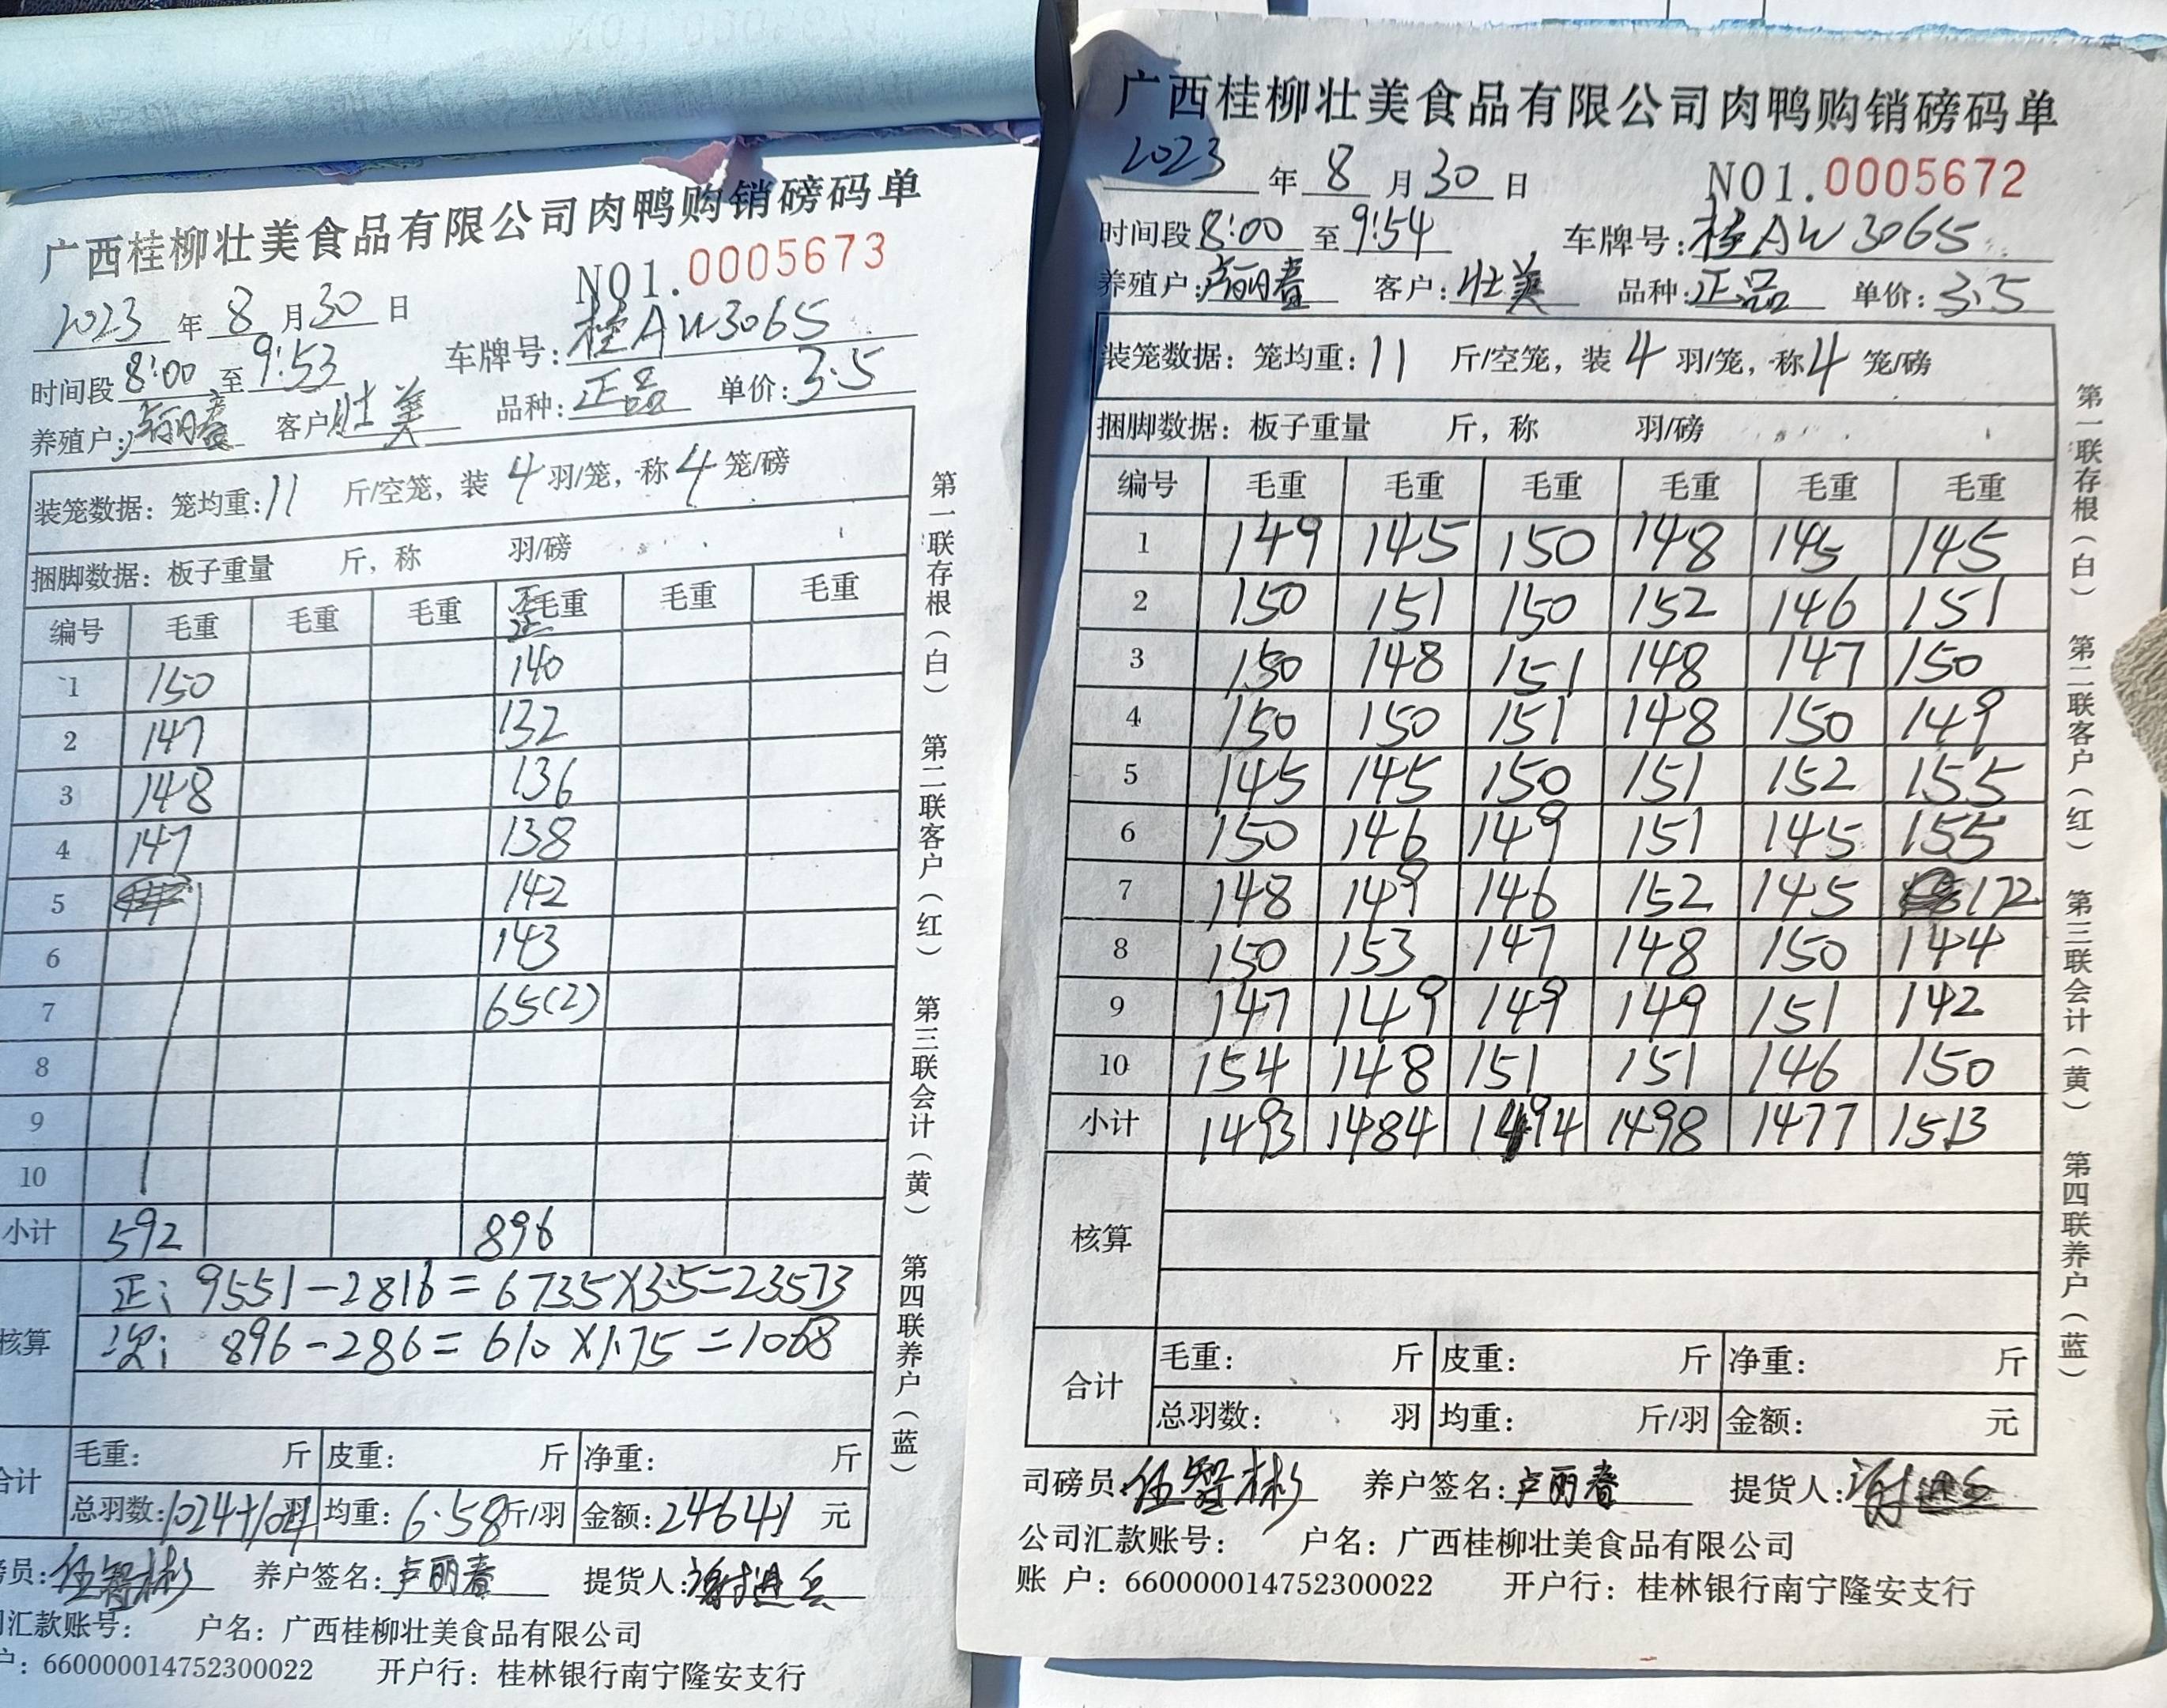 广西桂柳壮美食品有限公司肉鸭购销磅码单
NO1.0005673
2023 年 8 月 30 日
时间段 8:00 至 9:53 车牌号: 桂AW3065
养殖户: 卢丽春 客户: 壮美 品种: 正品 单价: 3.5
装笼数据: 笼均重: 11 斤/空笼, 装 4 羽/笼, 称 4 笼/磅
捆脚数据: 板子重量 斤, 称 羽/磅
编号 毛重 毛重 毛重 毛重 毛重 毛重
1 150 140
2 147 132
3 148 136
4 147 138
5 142
6 143
7 65(2)
8
9
10
小计 592 896
核算 正: 9551-2816=6735×3.5=23573
次: 896-286=610×1.75=1068
合计 毛重: 斤 皮重: 斤 净重: 斤
总羽数: 1024+104 羽 均重: 6.58 斤/羽 金额: 24641 元
磅员: 伍智彬 养户签名: 卢丽春 提货人: 谢进兵
司汇款账号: 户名: 广西桂柳壮美食品有限公司
户: 660000014752300022 开户行: 桂林银行南宁隆安支行
第一联存根(白) 第二联客户(红) 第三联会计(黄) 第四联养户(蓝)
广西桂柳壮美食品有限公司肉鸭购销磅码单
2023 年 8 月 30 日 NO1.0005672
时间段 8:00 至 9:54 车牌号: 桂AW3065
养殖户: 卢丽春 客户: 壮美 品种: 正品 单价: 3.5
装笼数据: 笼均重: 11 斤/空笼, 装 4 羽/笼, 称 4 笼/磅
捆脚数据: 板子重量 斤, 称 羽/磅
编号 毛重 毛重 毛重 毛重 毛重 毛重
1 149 145 150 148 145 145
2 150 151 150 152 146 151
3 150 148 151 148 147 150
4 150 150 151 148 150 149
5 145 145 150 151 152 155
6 150 146 149 151 145 155
7 148 149 146 152 145 172
8 150 153 147 148 150 144
9 147 149 149 149 151 142
10 154 148 151 151 146 150
小计 1493 1484 1494 1498 1477 1513
核算
合计 毛重: 斤 皮重: 斤 净重: 斤
总羽数: 羽 均重: 斤/羽 金额: 元
司磅员: 伍智彬 养户签名: 卢丽春 提货人: 谢进兵
公司汇款账号: 户名: 广西桂柳壮美食品有限公司
账 户: 660000014752300022 开户行: 桂林银行南宁隆安支行
第一联存根(白) 第二联客户(红) 第三联会计(黄) 第四联养户(蓝)